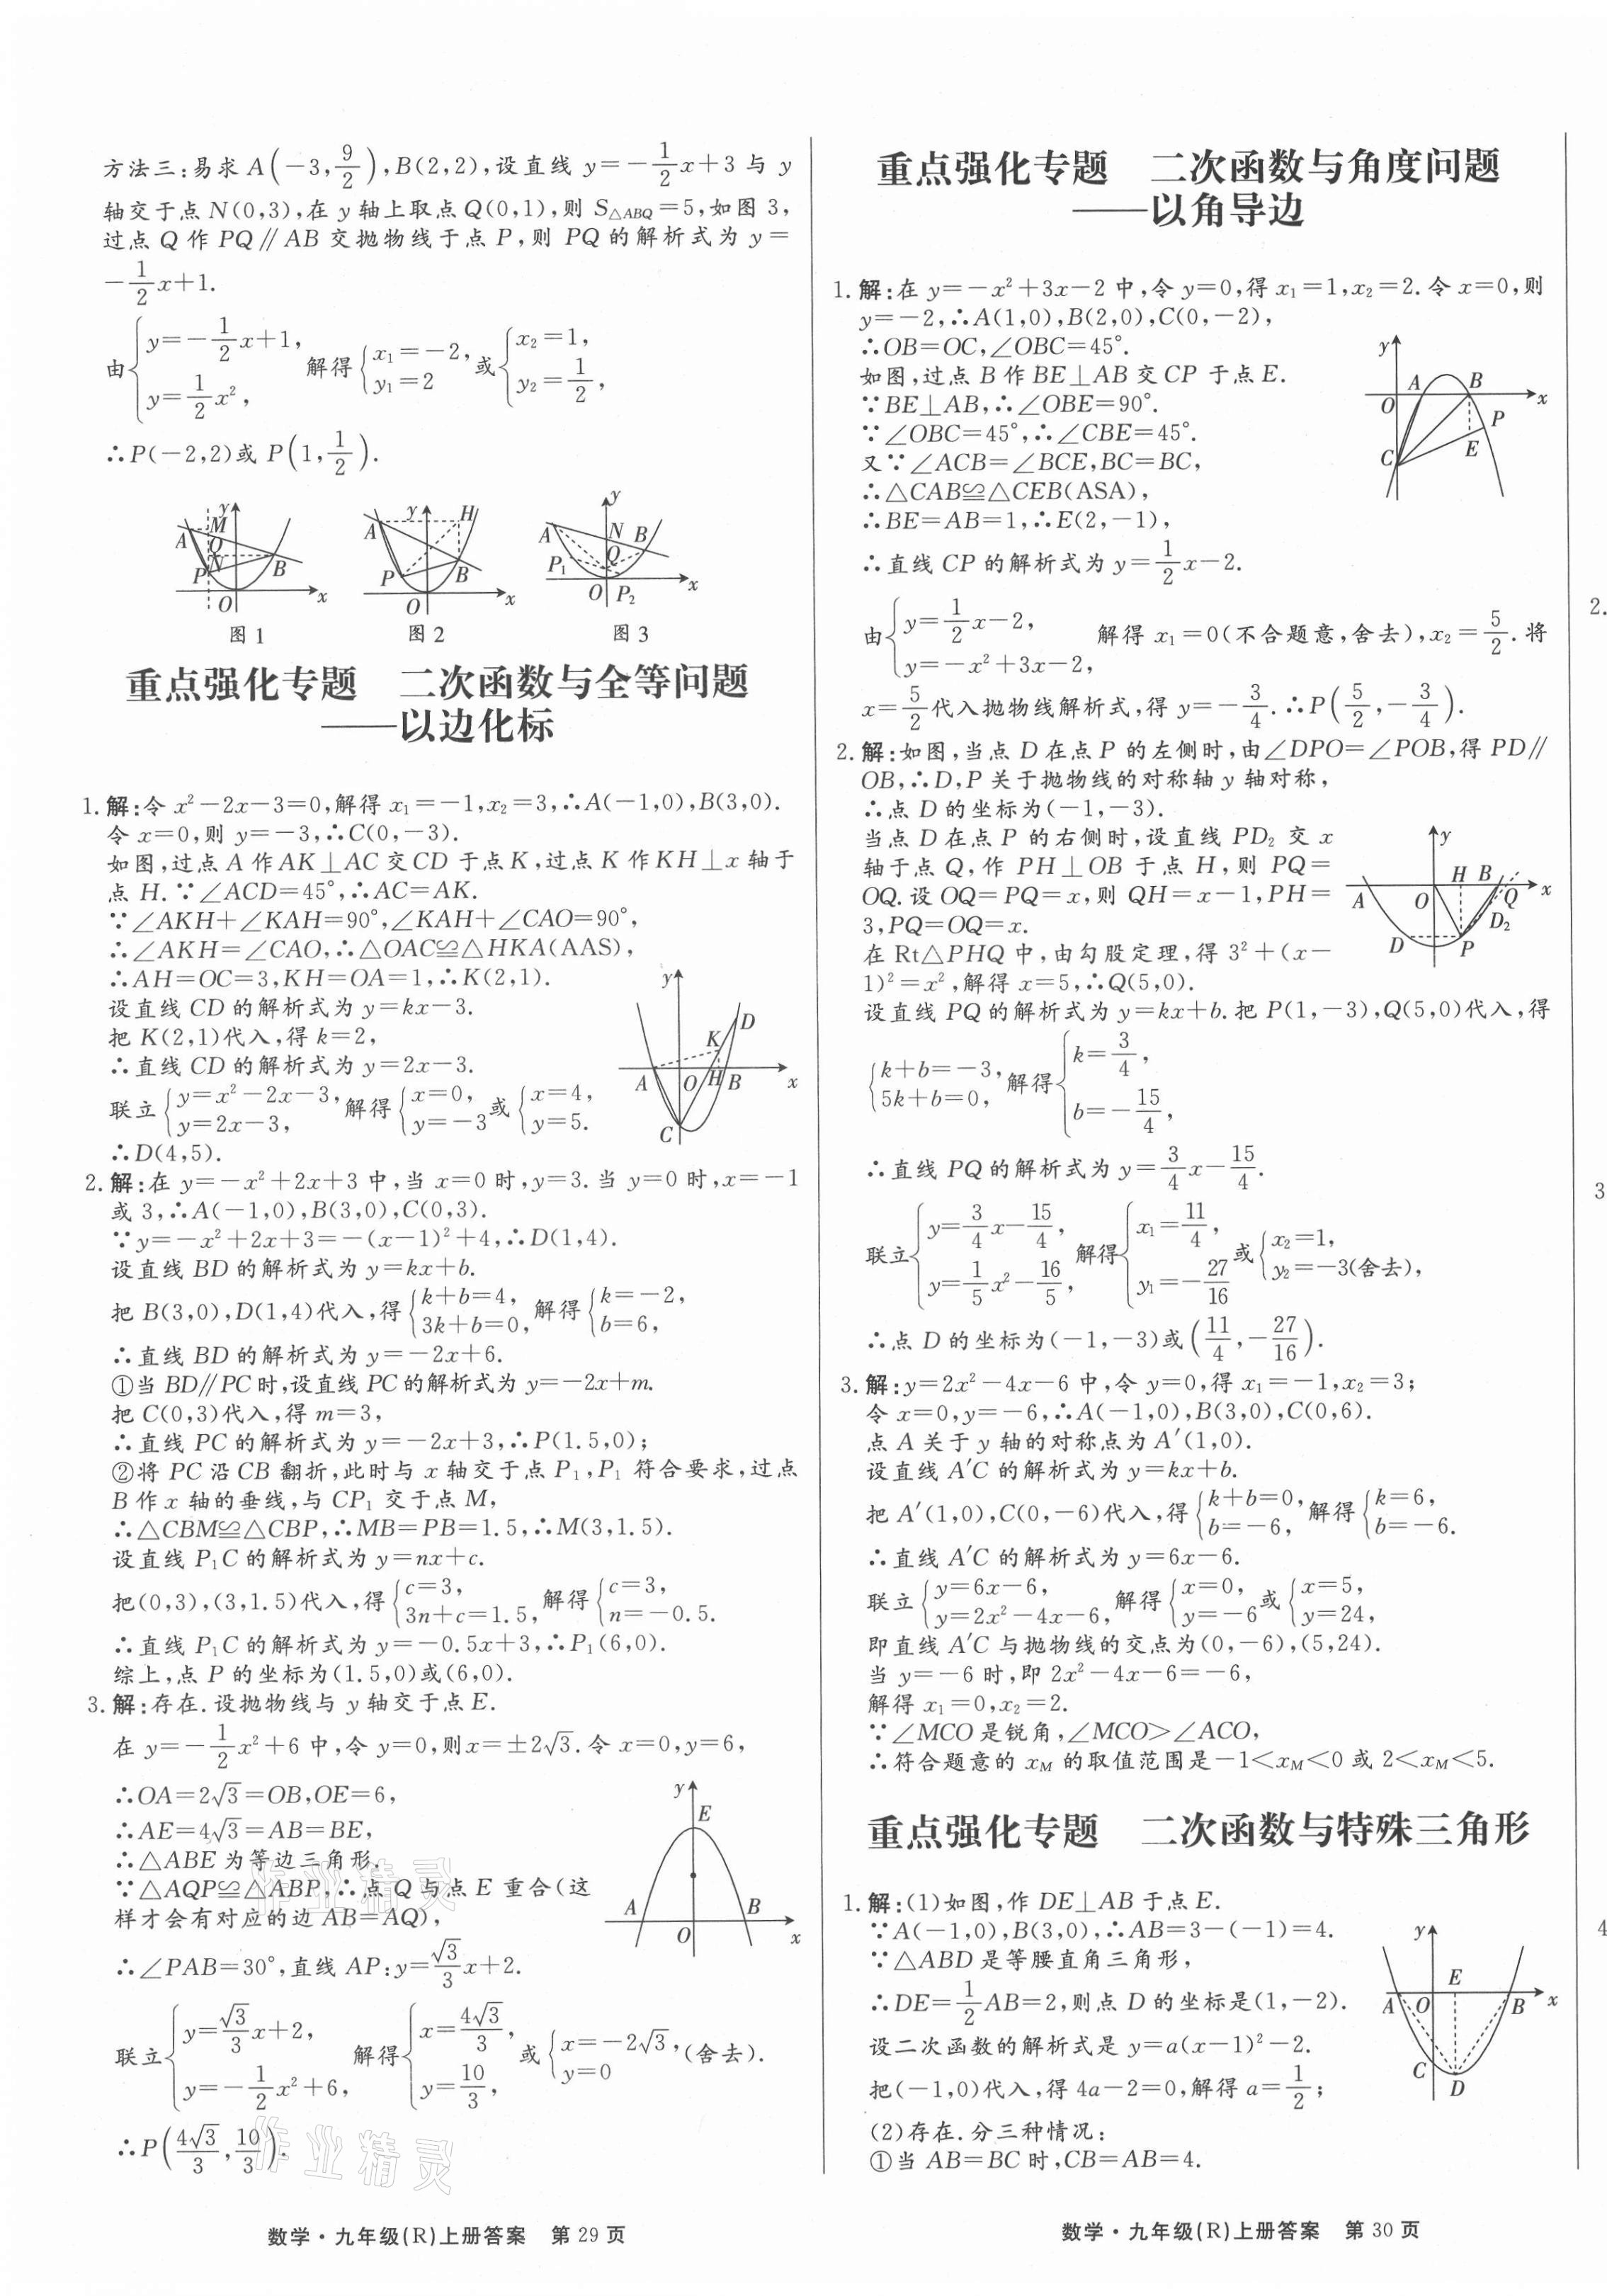 方法三:易求 A(-3,9/2),B(2,2),设直线 y=-1/2x+3 与 y
轴交于点 N(0,3),在 y 轴上取点 Q(0,1),则 S△ABQ=5,如图 3,
过点 Q 作 PQ∥AB 交抛物线于点 P,则 PQ 的解析式为 y=
-1/2x+1.
由{y=-1/2x+1, y=1/2x², 解得{x₁=-2, y₁=2 或{x₂=1, y₂=1/2,
∴P(-2,2)或 P(1,1/2).
y M A Q N P B O x
y H A P B O x
y A N B Q P₁ O P₂ x
图 1 图 2 图 3
重点强化专题 二次函数与全等问题
——以边化标
1. 解:令 x²-2x-3=0,解得 x₁=-1,x₂=3,∴A(-1,0),B(3,0).
令 x=0,则 y=-3,∴C(0,-3).
如图,过点 A 作 AK⊥AC 交 CD 于点 K,过点 K 作 KH⊥x 轴于
点 H.∵∠ACD=45°,∴AC=AK.
∵∠AKH+∠KAH=90°,∠KAH+∠CAO=90°,
∴∠AKH=∠CAO,∴△OAC≌△HKA(AAS),
∴AH=OC=3,KH=OA=1,∴K(2,1).
设直线 CD 的解析式为 y=kx-3.
把 K(2,1)代入,得 k=2,
∴直线 CD 的解析式为 y=2x-3.
联立{y=x²-2x-3, y=2x-3, 解得{x=0, y=-3 或{x=4, y=5.
∴D(4,5).
y D K A O H B x C
2. 解:在 y=-x²+2x+3 中,当 x=0 时,y=3.当 y=0 时,x=-1
或 3,∴A(-1,0),B(3,0),C(0,3).
∵y=-x²+2x+3=-(x-1)²+4,∴D(1,4).
设直线 BD 的解析式为 y=kx+b.
把 B(3,0),D(1,4)代入,得{k+b=4, 3k+b=0, 解得{k=-2, b=6,
∴直线 BD 的解析式为 y=-2x+6.
①当 BD∥PC 时,设直线 PC 的解析式为 y=-2x+m.
把 C(0,3)代入,得 m=3,
∴直线 PC 的解析式为 y=-2x+3,∴P(1.5,0);
②将 PC 沿 CB 翻折,此时与 x 轴交于点 P₁,P₁ 符合要求,过点
B 作 x 轴的垂线,与 CP₁ 交于点 M,
∴△CBM≌△CBP,∴MB=PB=1.5,∴M(3,1.5).
设直线 P₁C 的解析式为 y=nx+c.
把(0,3),(3,1.5)代入,得{c=3, 3n+c=1.5, 解得{c=3, n=-0.5.
∴直线 P₁C 的解析式为 y=-0.5x+3,∴P₁(6,0).
综上,点 P 的坐标为(1.5,0)或(6,0).
3. 解:存在.设抛物线与 y 轴交于点 E.
在 y=-1/2x²+6 中,令 y=0,则x=±2√3.令 x=0,y=6,
∴OA=2√3=OB,OE=6,
∴AE=4√3=AB=BE,
∴△ABE 为等边三角形.
∵△AQP≌△ABP,∴点 Q 与点 E 重合(这
样才会有对应的边 AB=AQ),
∴∠PAB=30°,直线 AP:y=√3/3x+2.
y E A O B x
联立{y=√3/3x+2, y=-1/2x²+6, 解得{x=4√3/3, y=10/3, 或{x=-2√3, y=0 (舍去).
∴P(4√3/3,10/3).
作业精灵
作业精灵
数学·九年级(R)上册答案 第 29 页
重点强化专题 二次函数与角度问题
——以角导边
1. 解:在 y=-x²+3x-2 中,令 y=0,得 x₁=1,x₂=2.令 x=0,则
y=-2,∴A(1,0),B(2,0),C(0,-2),
∴OB=OC,∠OBC=45°.
如图,过点 B 作 BE⊥AB 交 CP 于点 E.
∵BE⊥AB,∴∠OBE=90°.
∵∠OBC=45°,∴∠CBE=45°.
又∵∠ACB=∠BCE,BC=BC,
∴△CAB≌△CEB(ASA),
∴BE=AB=1,∴E(2,-1),
∴直线 CP 的解析式为 y=1/2x-2.
y A B O x P C E
由{y=1/2x-2, y=-x²+3x-2, 解得 x₁=0(不合题意,舍去),x₂=5/2.将
x=5/2代入抛物线解析式,得 y=-3/4.∴P(5/2,-3/4).
2. 解:如图,当点 D 在点 P 的左侧时,由∠DPO=∠POB,得 PD∥
OB,∴D,P 关于抛物线的对称轴 y 轴对称,
∴点 D 的坐标为(-1,-3).
当点 D 在点 P 的右侧时,设直线 PD₂ 交 x
轴于点 Q,作 PH⊥OB 于点 H,则 PQ=
OQ.设 OQ=PQ=x,则 QH=x-1,PH=
3,PQ=OQ=x.
在 Rt△PHQ 中,由勾股定理,得 3²+(x-
1)²=x²,解得 x=5,∴Q(5,0).
y H B A O Q x D D₂ P
设直线 PQ 的解析式为 y=kx+b.把 P(1,-3),Q(5,0)代入,得
{k+b=-3, 5k+b=0, 解得{k=3/4, b=-15/4,
∴直线 PQ 的解析式为 y=3/4x-15/4.
联立{y=3/4x-15/4, y=1/5x²-16/5, 解得{x₁=11/4, y₁=-27/16 或{x₂=1, y₂=-3(舍去),
∴点 D 的坐标为(-1,-3)或(11/4,-27/16).
3. 解:y=2x²-4x-6 中,令 y=0,得 x₁=-1,x₂=3;
令 x=0,y=-6,∴A(-1,0),B(3,0),C(0,6).
点 A 关于 y 轴的对称点为 A′(1,0).
设直线 A′C 的解析式为 y=kx+b.
把 A′(1,0),C(0,-6)代入,得{k+b=0, b=-6, 解得{k=6, b=-6.
∴直线 A′C 的解析式为 y=6x-6.
联立{y=6x-6, y=2x²-4x-6, 解得{x=0, y=-6 或{x=5, y=24,
即直线 A′C 与抛物线的交点为(0,-6),(5,24).
当 y=-6 时,即 2x²-4x-6=-6,
解得 x₁=0,x₂=2.
∵∠MCO 是锐角,∠MCO>∠ACO,
∴符合题意的 xM 的取值范围是-1<xM<0 或 2<xM<5.
重点强化专题 二次函数与特殊三角形
1. 解:(1)如图,作 DE⊥AB 于点 E.
∵A(-1,0),B(3,0),∴AB=3-(-1)=4.
∵△ABD 是等腰直角三角形,
∴DE=1/2AB=2,则点 D 的坐标是(1,-2).
设二次函数的解析式是 y=a(x-1)²-2.
把(-1,0)代入,得 4a-2=0,解得 a=1/2;
(2)存在.分三种情况:
①当 AB=BC 时,CB=AB=4.
y E A O B x C D
数学·九年级(R)上册答案 第 30 页
2.
3
4